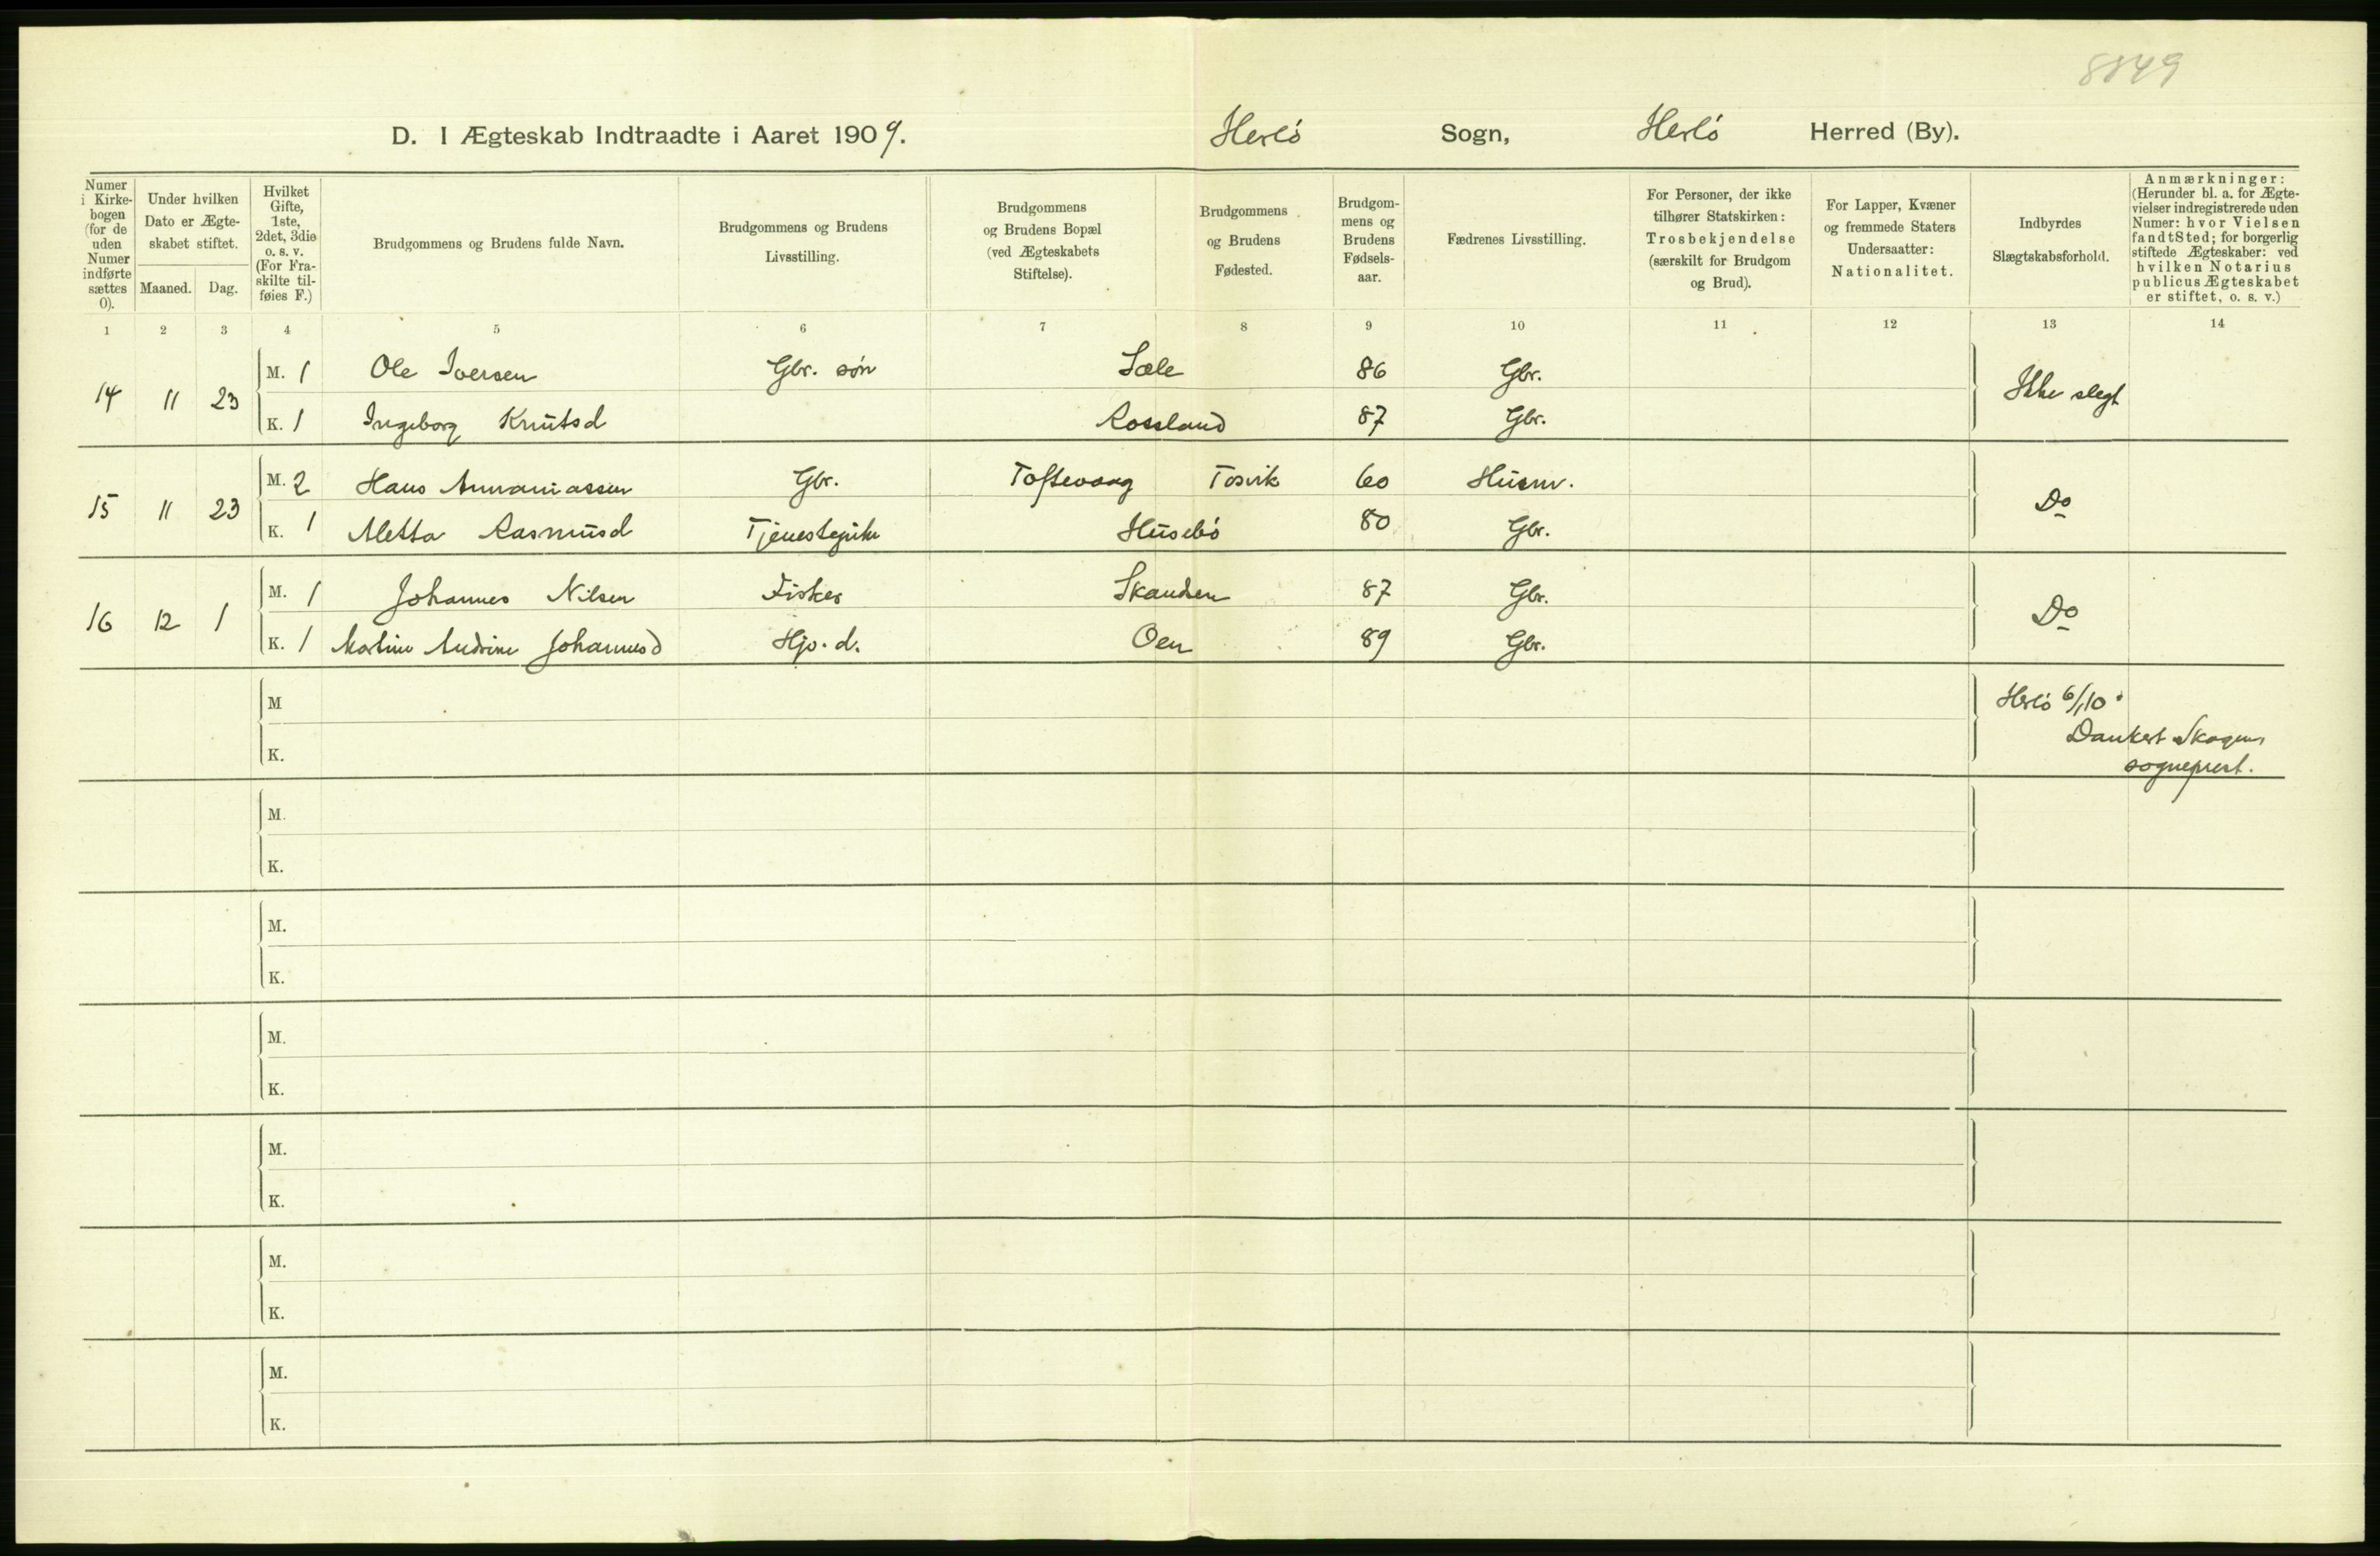 8849
D. I Ægteskab Indtraadte i Aaret 1909. Herlö Sogn, Herlö Herred (By).
Numer i Kirkebogen (for de uden Numer indførte sættes 0).
Under hvilken Dato er Ægteskabet stiftet. Maaned. Dag.
Hvilket Gifte, 1ste, 2det, 3die o. s. v. (For Fraskilte tilføies F.)
Brudgommens og Brudens fulde Navn.
Brudgommens og Brudens Livsstilling.
Brudgommens og Brudens Bopæl (ved Ægteskabets Stiftelse).
Brudgommens og Brudens Fødested.
Brudgommens og Brudens Fødselsaar.
Fædrenes Livsstilling.
For Personer, der ikke tilhører Statskirken: Trosbekjendelse (særskilt for Brudgom og Brud).
For Lapper, Kvæner og fremmede Staters Undersaatter: Nationalitet.
Indbyrdes Slægtskabsforhold.
Anmærkninger: (Herunder bl. a. for Ægtevielser indregistrerede uden Numer: hvor Vielsen fandt Sted; for borgerlig stiftede Ægteskaber: ved hvilken Notarius publicus Ægteskabet er stiftet, o. s. v.)
1 2 3 4 5 6 7 8 9 10 11 12 13 14
14 11 23 M. 1 Ole Iversen Gbr. søn Sæle 86 Gbr. Ikke slegt
K. 1 Ingeborg Knutsd Rossland 87 Gbr.
15 11 23 M. 2 Hans Annaniassen Gbr. Toftevaag Tosvik 60 Husm. Do
K. 1 Metta Rasmusd Tjenestepike Husebö 80 Gbr.
16 12 1 M. 1 Johannes Nilsen Fisker Skandsen 87 Gbr. Do
K. 1 Martine Andrine Johannesd Hjv. d. Oen 89 Gbr.
M Herlö 6/1 10.
K. Dankert Skagen
sogneprest.
M.
K.
M.
K.
M.
K.
M.
K.
M.
K.
M.
K.